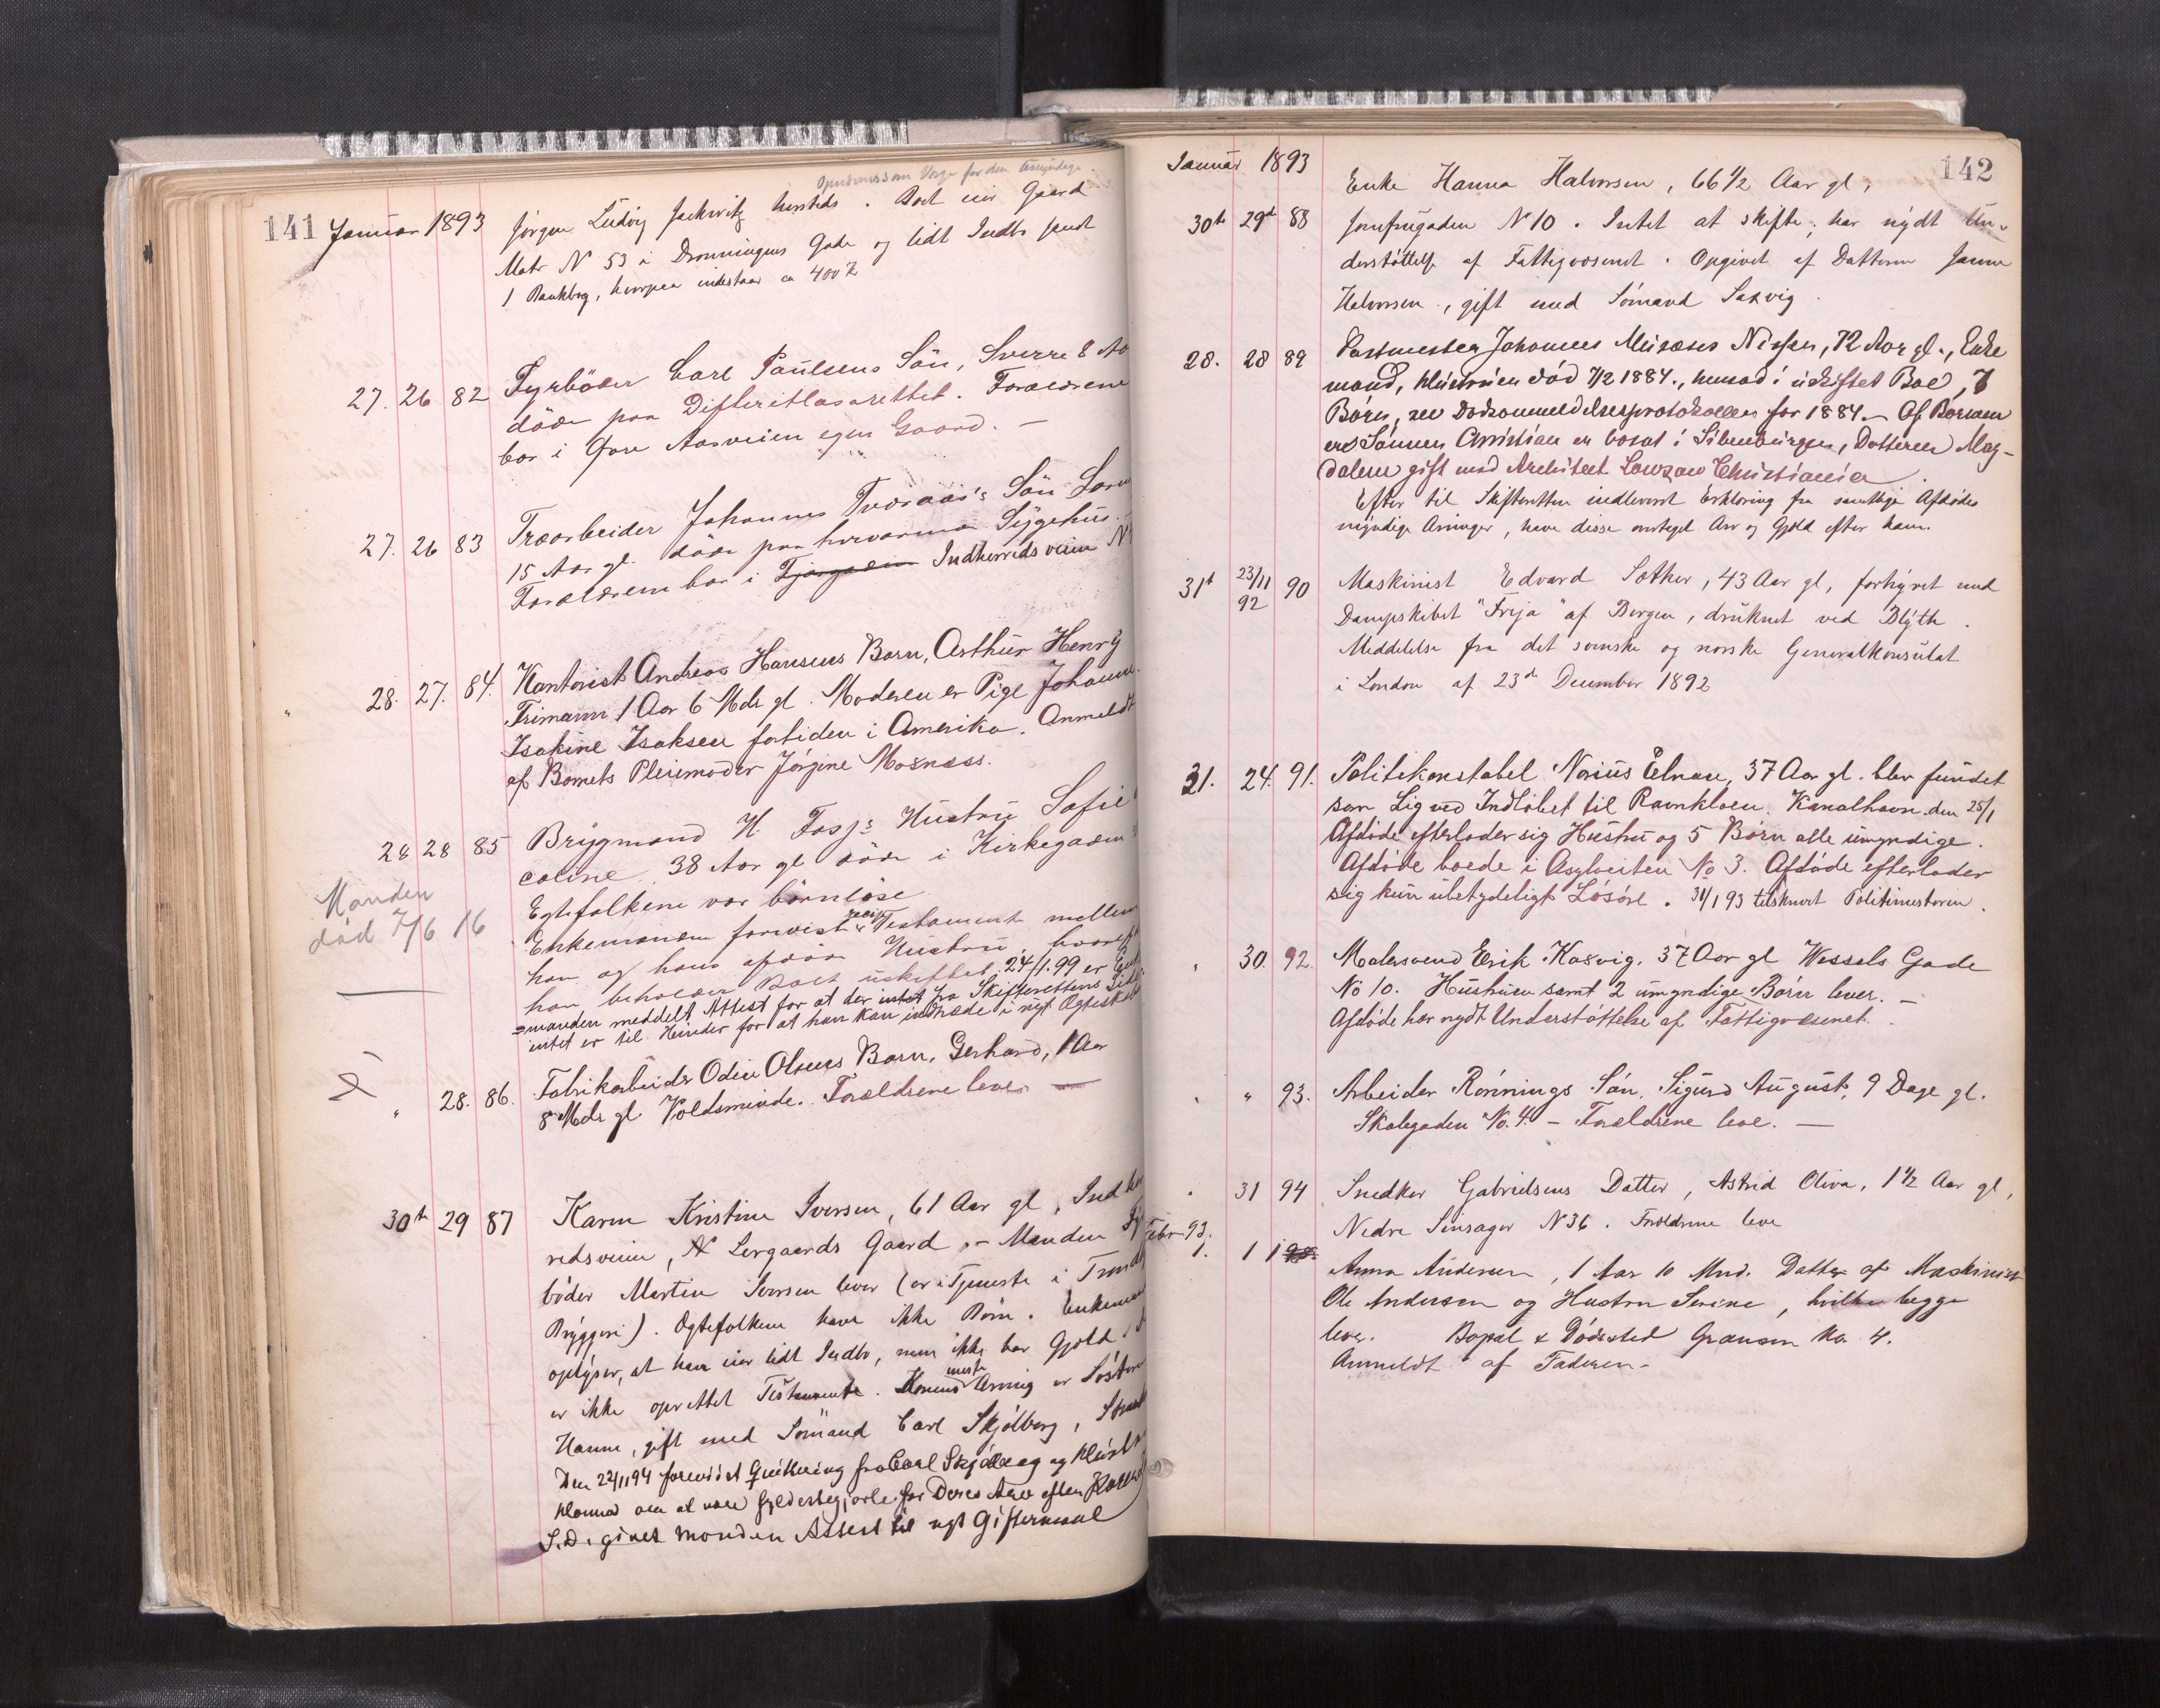 141 Januar 1893
Jørgen Ludvig Jackwitz hersteds. Boet eier Gaard
Matr N 53 i Dronningens Gade og lidt Indbo samt
1 Bankbog, hvorpaa indestaar ca 400
27. 26 82 Fyrbøder Carl Paulsens Søn, Sverre 8 Aar
døde paa Difteritlasarettet. Forældrene
bor i Øvre Aasveien egen Gaard. —
27. 26 83 Træarbeider Johannes Tværaas's Søn
15 Aar gl. døde paa herværende Sygehus.
Forældrene bor i Indherredsveien N
28. 27. 84. Kontorist Andreas Hansens Barn, Arthur Henry
Frimann 1 Aar 6 Mdr gl. Moderen er Pige Johanne
Isakine Isaksen fortiden i Amerika. Anmeldt
af Barnets Pleiemoder Jørgine Moxness.
28 28 85 Brygmand H. Foss's Hustru Sofie
38 Aar gl døde i Kirkegaden
Egtefolkene var børnløse
Manden
død 7/6 16
Enkemanden foreviste Testament mellem
ham og hans afdøde Hustru, hvorefter
han beholder Boet uskiftet. 24/1.99 er Enke
=manden meddelt Attest for at der intet fra Skifterettens Side
intet er til Hinder for at han kan indtræde i nyt Ægteskab
" 28. 86. Fabrikarbeider Odin Olsens Barn, Gerhard, 1 Aar
8 Mdr gl. Voldsminde. Forældrene lever —
30te 29 87 Karen Kristine Iversen, 61 Aar gl, Indher
redsveien, Lergaards Gaard, – Manden Fyr
bøder Martin Iversen lever (er i Tjeneste i
Bryggeri). Ægtefolkene have ikke Børn. Enkemanden
oplyser, at han eier lidt Indbo, men ikke har Gjæld.
er ikke oprettet Testamente. Konens næste Arving er Søsteren
Hanna, gift med Sømand Carl Skjølberg,
Den 22/11 94 forevist Quittering fra Carl Skjølberg og Hustru
Hanna om at være fyldestgjorte for Deres Arv efter
S.D. gives Manden Attest til nyt Giftermaal
Januar 1893 142
Enke Hanna Halvorsen, 66 1/2 Aar gl,
30te 29de 88 Jomfrugaden N 10. Intet at skifte; har nydt Un-
derstøttelse af Fattigvæsenet. Opgivet af Datteren Janna
Halvorsen, gift med Sømand Saxvig.
28. 28 89 Postmester Johannes Musæus Nissen, 72 Aar gl., Enke
mand, Hustruen død 7/2 1884., hensad i uskiftet Boe, 7
Børn, see Dødsanmeldelsesprotokollen for 1884. – Af Børnene
er Sønnen Christian er bosat i Sibenbürgen, Datteren Mag-
dalene gift med Architect Christiania.
Efter til Skifteretten indleveret Erklæring fra samtlige Afdødes
myndige Arvinger, have disse overtaget Arv og Gjæld efter ham.
31te 23/11 92 90 Maskinist Edvard Sother, 43 Aar gl, forhyret med
Dampskibet "Freja" af Bergen, druknet ved Blyth.
Meddelelse fra det svenske og norske Generalkonsulat
i London af 23de December 1892
31. 24. 91. Politikonstabel Norius Elnan, 37 Aar gl. blev fundet
som Lig ved Indløbet til Ravnkloen. Kanalhavn. den 25/1
Afdøde efterlader sig Hustru og 5 Børn alle umyndige.
Afdøde boede i Asylveiten No 3. Afdøde efterlader
sig kun ubetydeligt Løsøre. 31/1 93 tilskrevet Politimesteren.
" 30. 92. Malersvend Erik Kaxvig. 37 Aar gl Wessels Gade
No 10. Hustruen samt 2 umyndige Børn lever. –
Afdøde har nydt Understøttelse af Fattigvæsenet.
" " 93. Arbeider Rønnings Søn, Sigurd August, 9 Dage gl.
Skolegaden No. 4. – Forældrene leve. —
" 31 94 Snedker Gabrielsens Datter, Astrid Oliva, 1 1/2 Aar gl,
Nedre Singsager N 36. Forældrene leve
Febr 93.
1. 1 1 Anna Andersen, 1 Aar 10 Mnd. Datter af Maskinist
Ole Andersen og Hustru Serine, hvilke begge
lever. Bopæl & Dødssted Grænsen No. 4.
Anmeldt af Faderen –